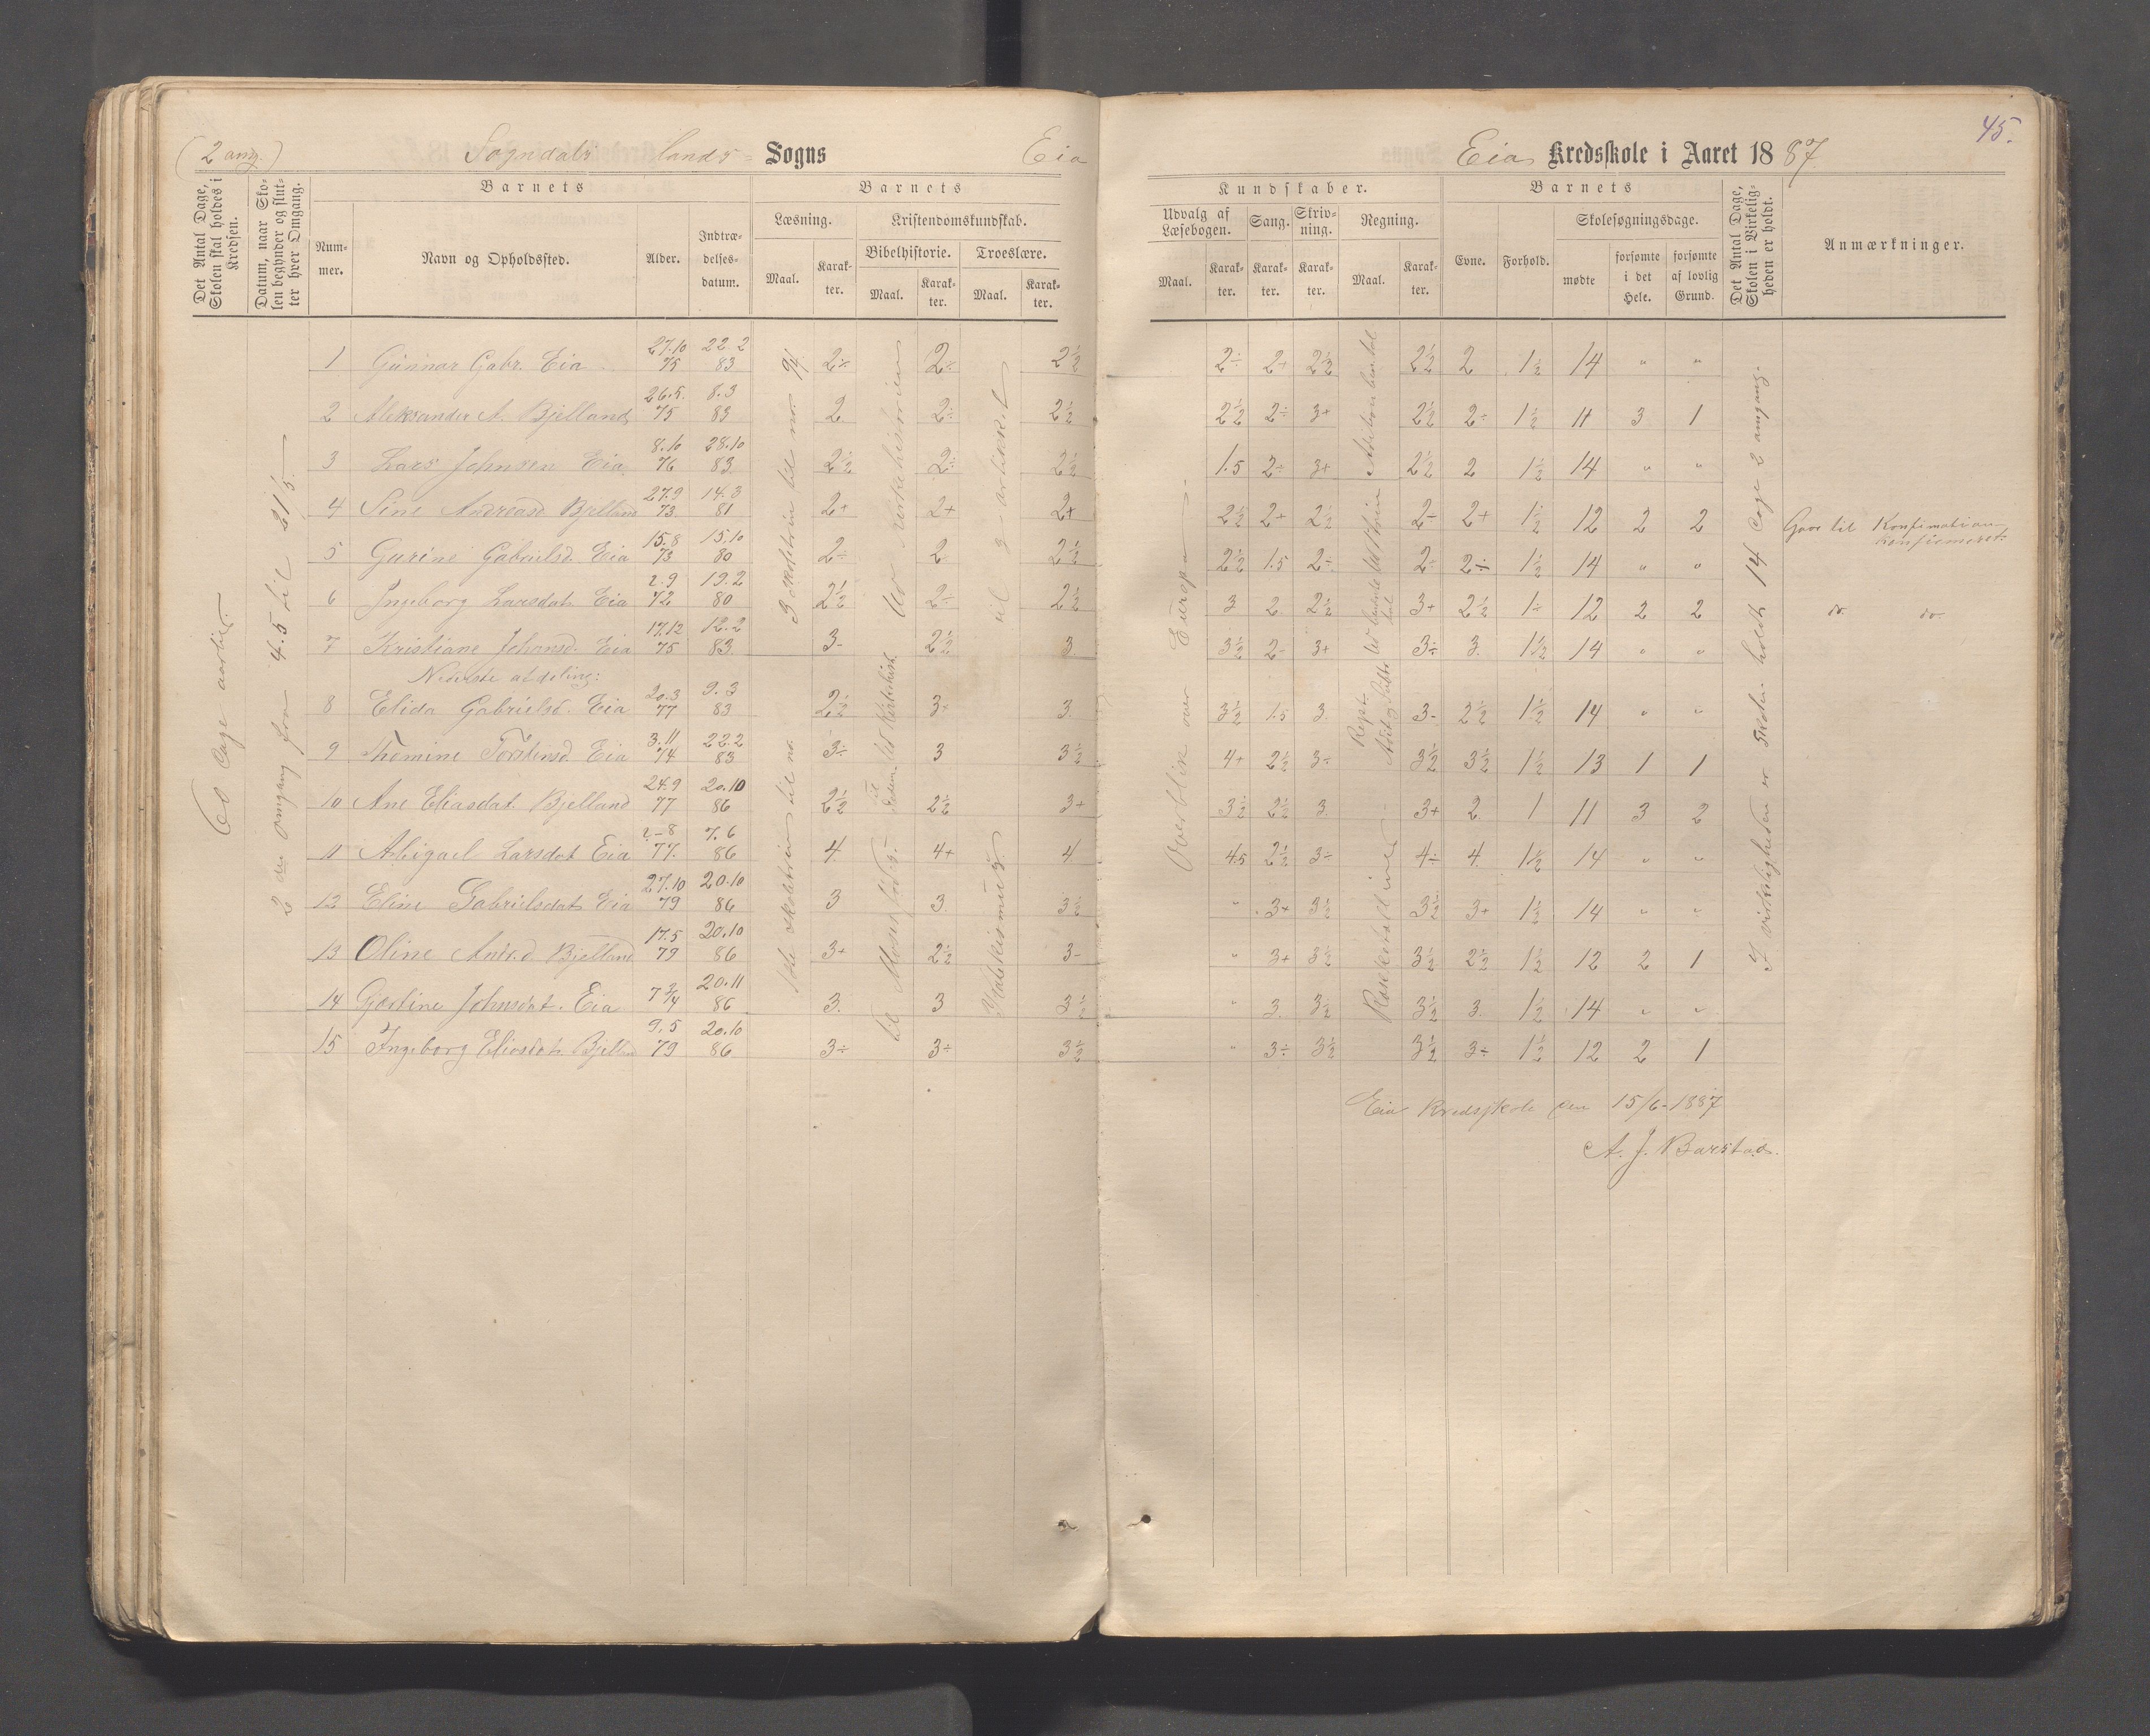 45.
(2 omg.) Sogndals Lands- Sogns Eia
Eia Kredsskole i Aaret 1887.
Det Antal Dage, Skolen skal holdes i Kredsen.
Datum, naar Skolen begynder og slutter hver Omgang.
Barnets
Nummer.
Navn og Opholdssted.
Alder.
Indtrædelsesdatum.
Barnets
Læsning.
Maal.
Karakter.
Kristendomskundskab.
Bibelhistorie.
Maal.
Karakter.
Troeslære.
Maal.
Karakter.
Kundskaber.
Udvalg af Læsebogen.
Maal.
Karakter.
Sang.
Karakter.
Skrivning.
Karakter.
Regning.
Maal.
Karakter.
Barnets
Evne.
Forhold.
Skolesøgningsdage.
mødte
forsømte i det Hele.
forsømte af lovlig Grund.
Det Antal Dage, Skolen i Virkeligheden er holdt.
Anmærkninger.
60 Dage aarlig.
2den omgang fra 4.5 til 21/5.
til 3 artikkel
Katekismus
Overblik over Europa
I virkeligheden er skolen holdt 14 Dage 2 omgang.
1 Gunnar Gabr. Eia 27.10 75 22.2 83 2÷ 2÷ 2½ 2÷ 2+ 2½ 2½ 2 1½ 14 " "
2 Aleksander A. Bjelland 26.5. 75 8.3 83 2 2÷ 2½ 2½ 2÷ 3+ 2½ 2÷ 1½ 11 3 1
3 Lars Johnsen Eia 8.10 76 28.10 83 2½ 2÷ 2½ 1.5 2÷ 3+ 2½ 2 1½ 14 " "
4 Sine Andreasd Bjelland 27.9 73 14.3 81 2+ 2+ 2+ 2½ 2+ 2½ 2÷ 2+ 1½ 12 2 2 Gaar til Konfirmation
5 Gurine Gabrielsd. Eia 15.8 73 15.10 80 2÷ 2 2½ 2½ 1.5 2÷ 2÷ 2÷ 1½ 14 " " Konfirmeret.
6 Ingeborg Larsdat. Eia 2.9 72 19.2 80 2½ 2÷ 2½ 3 2 2½ 3+ 2½ 1÷ 12 2 2 do. do.
7 Kristiane Johansd. Eia 17.12 75 12.2 83 3- 2½ 3 3½ 2÷ 3+ 3÷ 3. 1½ 14 " "
Nederste afdeling:
8 Elida Gabrielsd. Eia 20.3 77 9.3 83 2½ 3+ 3 3½ 1.5 3. 3- 2½ 1½ 14 " "
9 Thomine Torstensd. Eia 3.11 74 22.2 83 3÷ 3 3½ 4+ 2½ 3÷ 3½ 3½ 1½ 13 1 1
10 Ane Eliasdat. Bjelland 24.9 77 20.10 86 2½ 2½ 3+ 3½ 2½ 3 3+ 2 1 11 3 2
11 Abigael Larsdat Eia 2-8 77. 7.6 86 4 4+ 4 4.5 2½ 3÷ 4÷ 4. 1½ 14 " "
12 Eline Gabrielsdat Eia 27.10 79 20.10 86 3 3 3½ " 3+ 3½ 3½ 3+ 1½ 14 " "
13 Oline Andr.d Bjelland 17.5 79 20.10 86 3+ 2½ 3- " 3+ 3½ 3½ 2½ 1½ 12 2 1
14 Gæsline Johnsdat. Eia 7¾ 20.11 86 3. 3 3½ " 3. 3½ 3½ 3. 1½ 14 " "
15 Ingeborg Eliasdat. Bjelland 9.5 79 20.10 86 3÷ 3÷ 3½ " 3÷ 3½ 3½ 3÷ 1½ 12 2 1
Eia Kredsskole den 15/6-1887
A. J. Barstad.